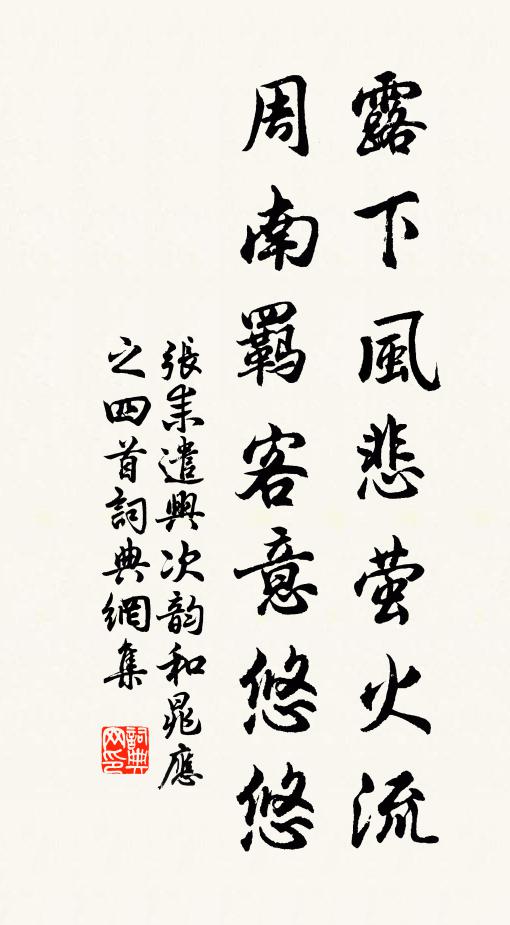 露下風悲萤火流
周南羁客意悠悠
張耒遣興次韵和晁應
之四首詞典網集
詞典网印